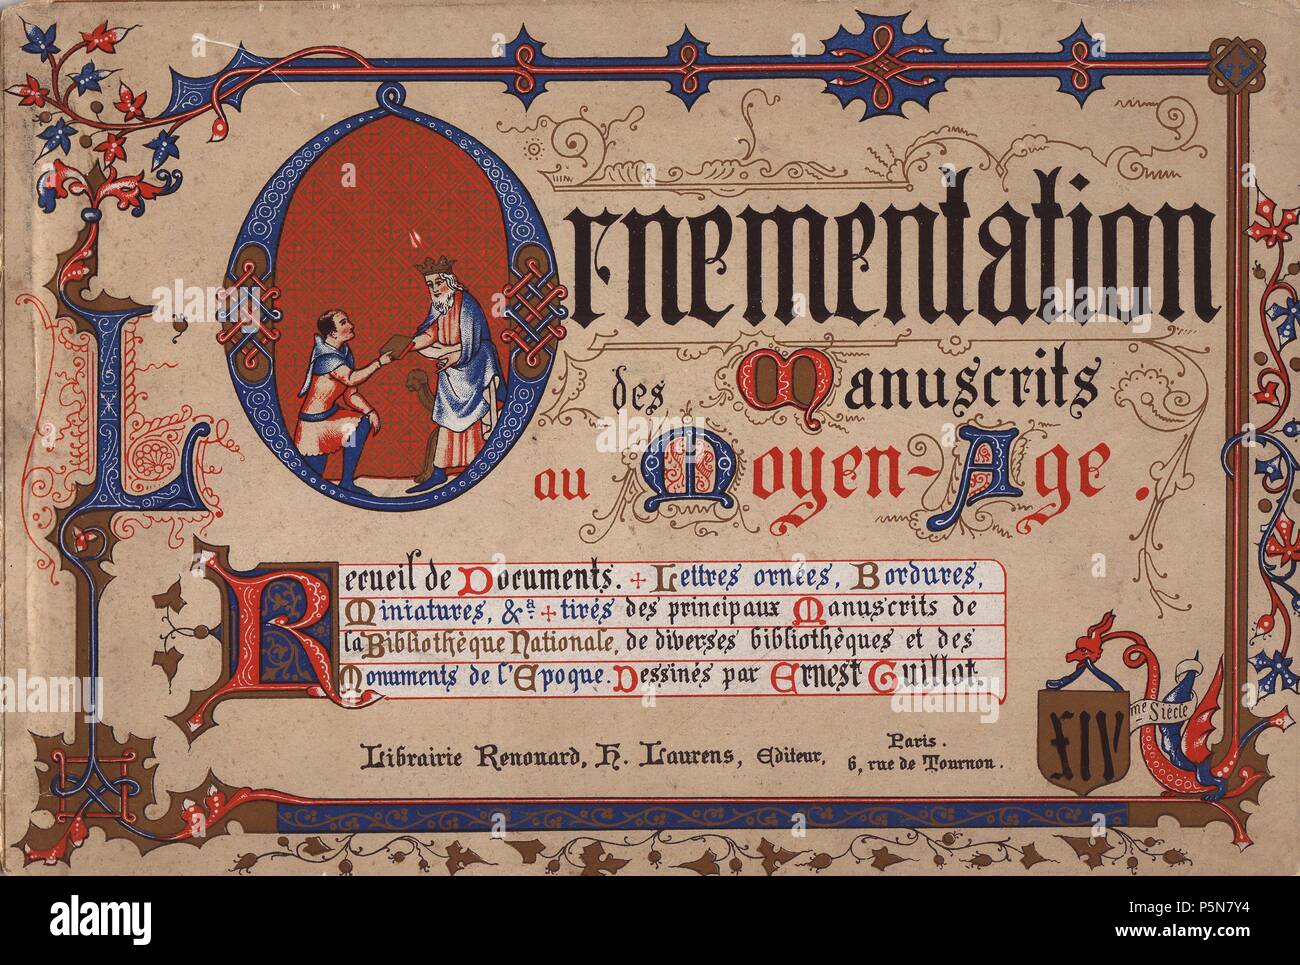 L'Ornementation
des Manuscrits
au Moyen-Age.
Recueil de Documents. + Lettres ornées, Bordures,
Miniatures, &a. + tirés des principaux Manuscrits de
la Bibliothèque Nationale, de diverses bibliothèques et des
Monuments de l'Epoque. Dessinés par Ernest Guillot.
XIV
me Siècle
Librairie Renouard, H. Laurens, Editeur,
Paris.
6, rue de Tournon.
alamy
a
alamy
Image ID: P5N7Y4
www.alamy.com